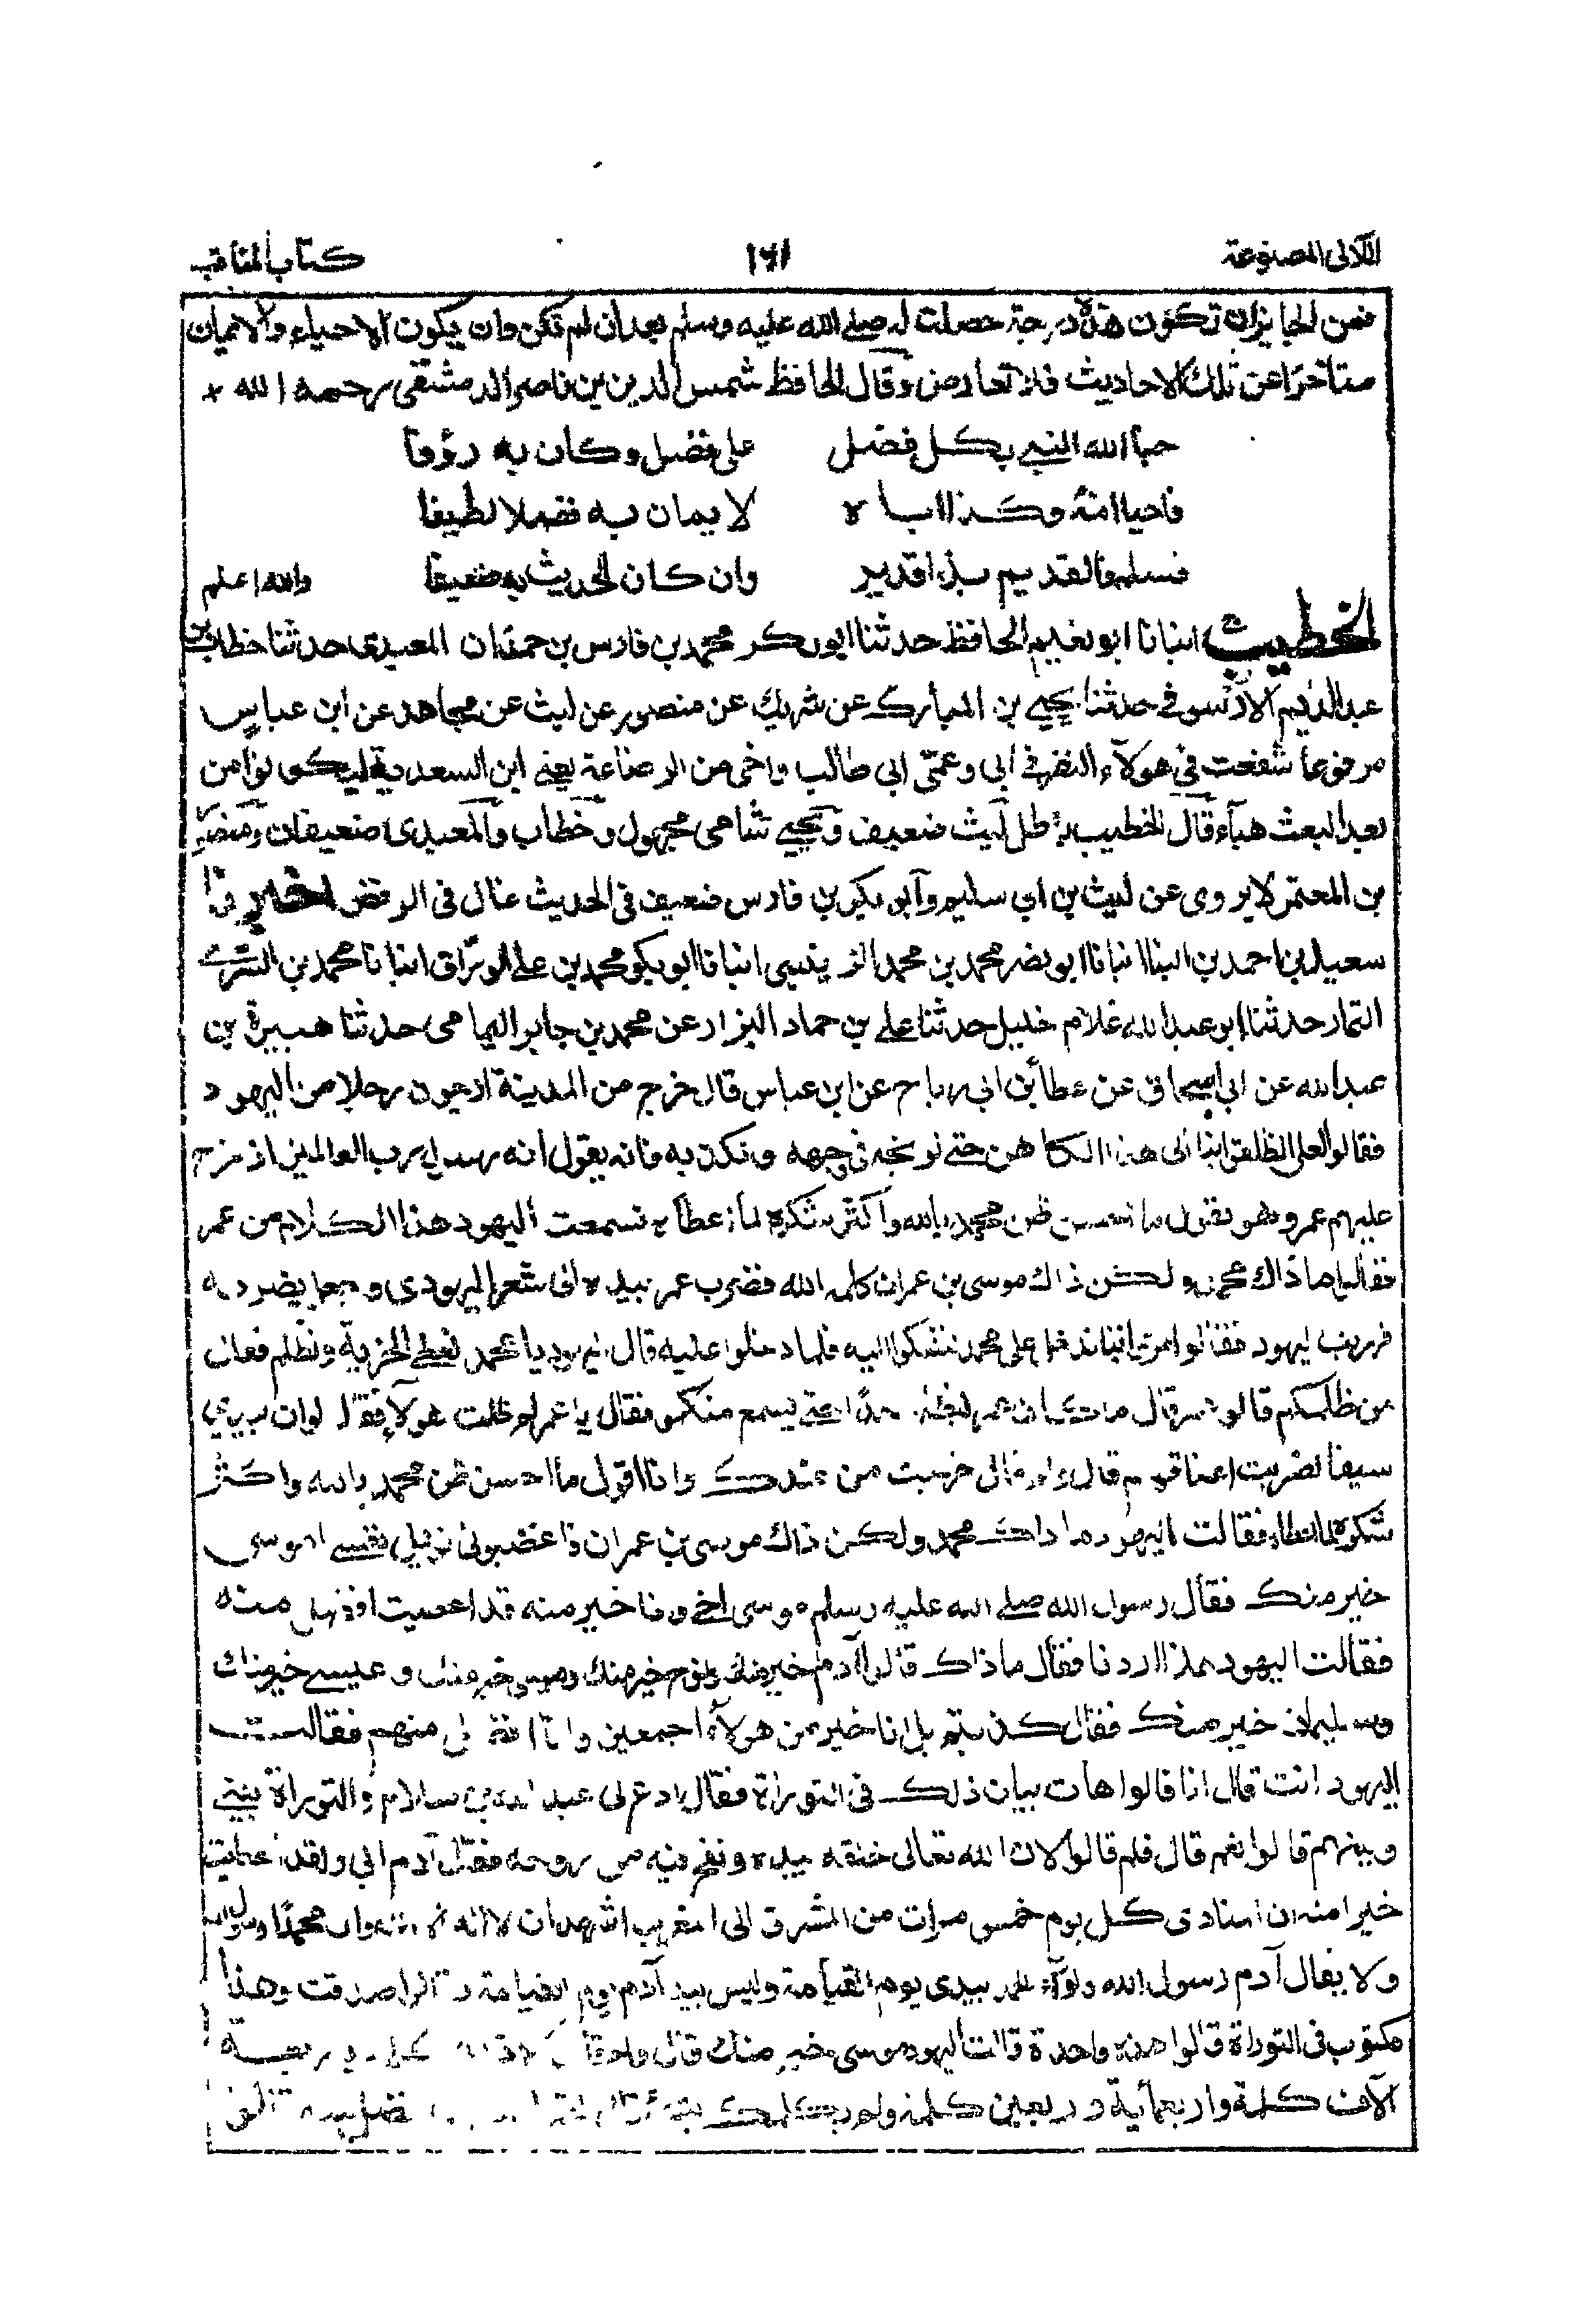 اللآلى المصنوعة
١٦١
كتاب المناقب
فمن الجايز ان تكون هذه درجة حصلت له صلى الله عليه وسلم بعد ان لم تكن وان يكون الاحياء والايمان
متأخرا عن تلك الاحاديث فلا تعارض وقال الحافظ شمس الدين بن ناصر الدمشقى رحمه الله
حبا الله النبي بكل فضل على فضل وكان به رؤفا
فاحيا امه وكذا اباه لايمان به فضلا لطيفا
فسلم فالقديم بذا قدير وان كان الحديث به ضعيفا والله اعلم
الخطيب انبانا ابو نعيم الحافظ حدثنا ابو بكر محمد بن فارس بن حمدان المعبدى حدثنا خطاب بن
عبد الدايم الارسوفى حدثنا يحيى بن المبارك عن شريك عن منصور عن ليث عن مجاهد عن ابن عباس
مرفوعا شفعت فى هولاء النفر فى ابى وعمى ابى طالب واخى من الرضاعة يعنى ابن السعدية ليكونوا من
بعد البعث هباء قال الخطيب باطل ليث ضعيف ويحيى شامى مجهول وخطاب والمعبدى ضعيفان ومنصور
بن المعتمر لا يروى عن ليث بن ابى سليم وابو بكر بن فارس ضعيف فى الحديث غال فى الرفض اخبرنا
سعيد بن احمد بن البنا انبانا ابو نصر محمد بن محمد الزينبى انبانا ابو بكر محمد بن على الوراق انبانا محمد بن السرى
التمار حدثنا ابو عبد الله غلام خليل حدثنا على بن حماد البزار عن محمد بن جابر اليمامى حدثنا هبيرة بن
عبد الله عن ابى اسحاق عن عطاء بن ابى رباح عن ابن عباس قال خرج من المدينة اربعون رجلا من اليهود
فقالوا انطلقوا بنا الى هذا الكاهن حتى نوبخه فى وجهه ونكذبه فانه يقول انه رسول رب العالمين اذ خرج
عليهم عمر وهو يقول ما احسن ظن محمد بالله واكثر شكره لما اعطاه فسمعت اليهود هذا الكلام من عمر
فقالوا ما ذاك محمد ولكن ذاك موسى بن عمران كلمه الله فضرب عمر بيده الى شعر اليهودى وجعل يضربه
فهربت اليهود فقالوا مروا بنا ندخل على محمد نشكوا اليه فلما دخلوا عليه قال اليهود يا محمد نعطى الجزية ونظلم فقال
من ظلمكم قالوا عمر قال ما كان عمر ليظلم احدا حتى يسمع منكرا فقال يا عمر لم ظلمت هولاء فقال لو ان بيدى
سيفا لضربت اعناقهم قال ولم قال خرجت من عندك وانا اقول ما احسن ظن محمد بالله واكثر
شكره لما اعطاه فقالت اليهود ما ذاك محمد ولكن ذاك موسى بن عمران فاغضبونى نفسى اموسى
خير منك فقال رسول الله صلى الله عليه وسلم موسى اخى وانا خير منه قد اعطيت افضل منه
فقالت اليهود هذا اردنا فقال ما ذاك قالوا آدم خير منك ونوح خير منك وموسى خير منك وعيسى خير منك
وسليمان خير منك فقال كذبتم بل انا خير من هولاء اجمعين وانا افضل منهم فقالت
اليهود انت قال انا قالوا هات بيان ذلك فى التوراة فقال ادع لى عبد الله بن سلام والتوراة بينى
وبينهم قالوا نعم قال فلم قالوا لان الله تعالى خلقه بيده ونفخ فيه من روحه فقال آدم ابى ولقد اعطيت
خيرا منه ان المنادى كل يوم خمس مرات من المشرق الى المغرب اشهد ان لا اله الا الله وان محمدا رسول الله
ولا يقال آدم رسول الله ولواء الحمد بيدى يوم القيامة وليس بيد آدم يوم القيامة قالوا صدقت وهذا
مكتوب فى التوراة قالوا هذه واحدة قالت اليهود موسى خير منك قال ولم قالوا
الآف كلمة واربعمائة واربعين كلمة ولم يكلمك